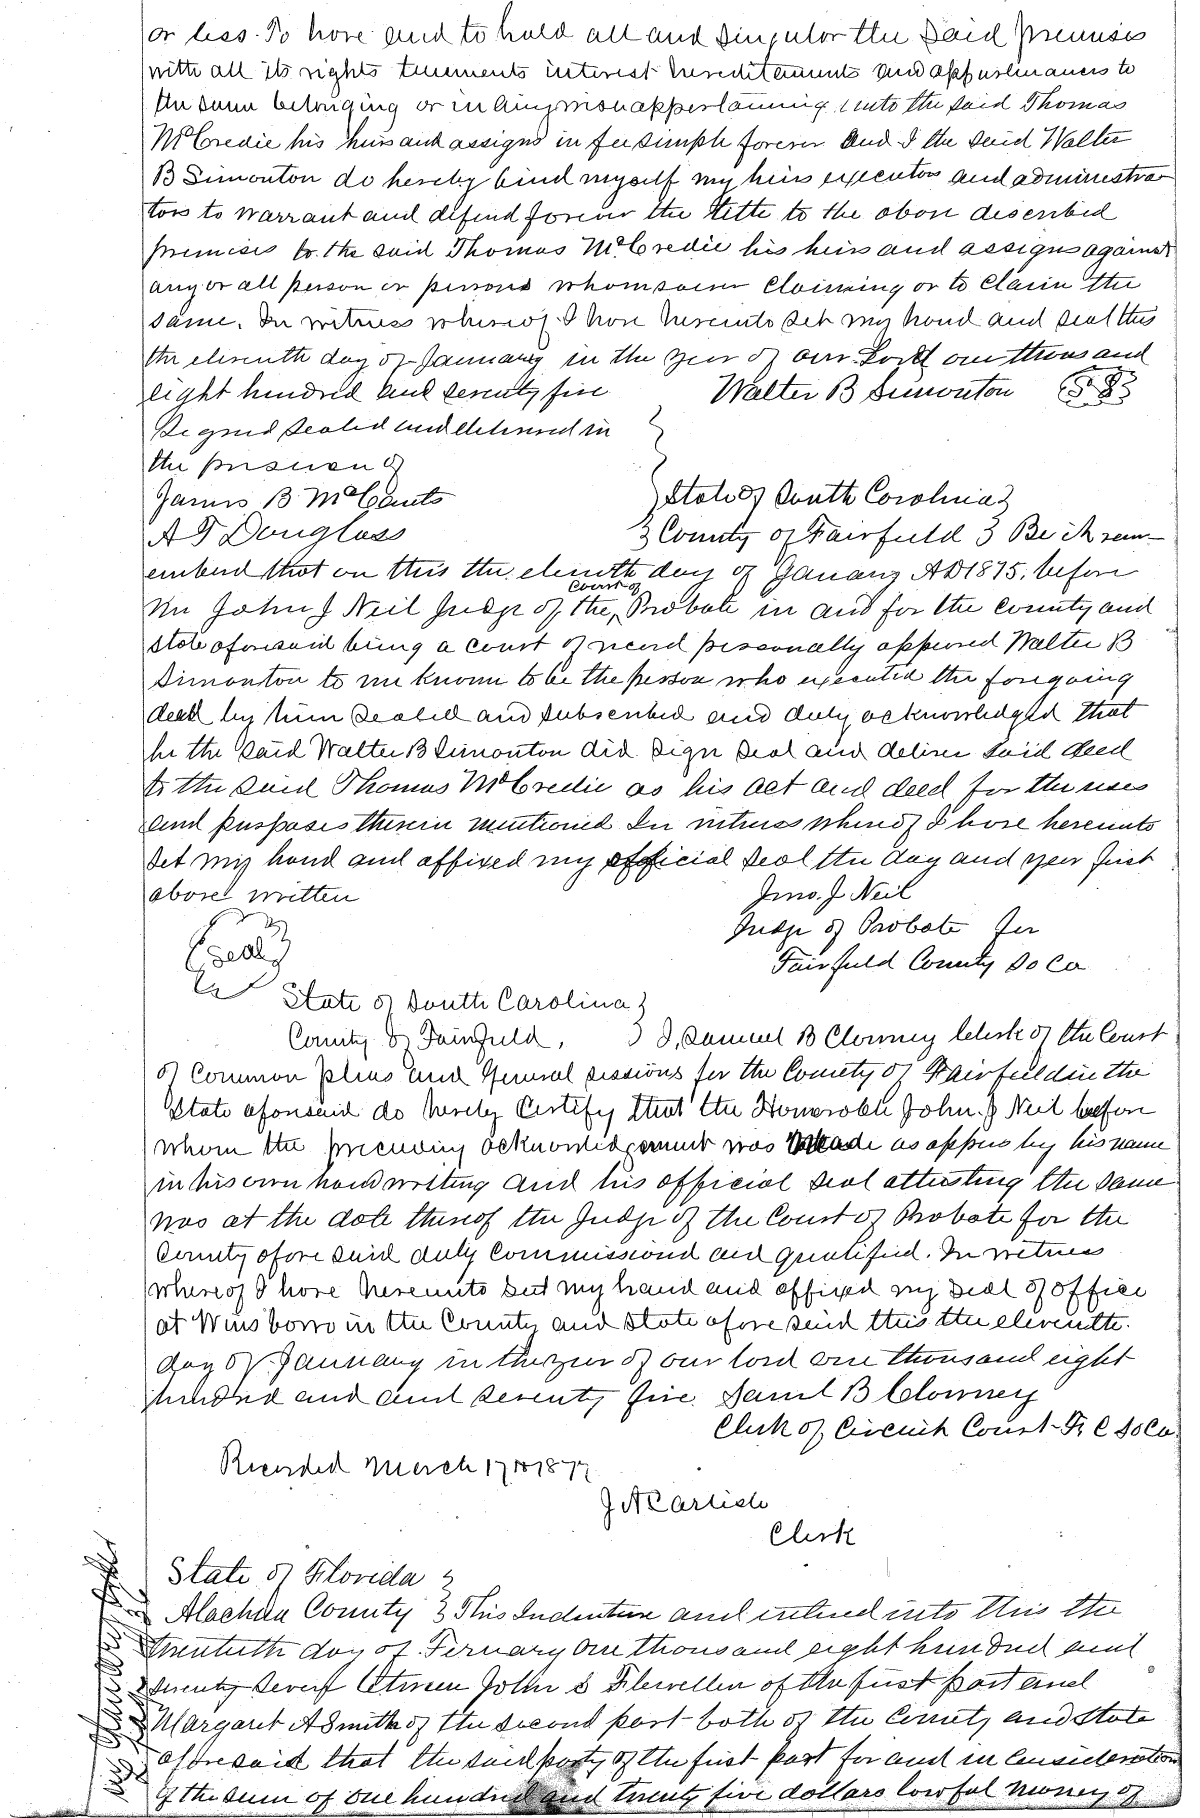 or less. To have and to hold all and Singular the Said premises
with all its rights tenements interest hereditaments and appurtenances to
the same belonging or in any wise appertaining unto the said Thomas
McCredie his heirs and assigns in fee simple forever And I the said Walter
B Simonton do hereby bind myself my heirs executors and administra
tors to warrant and defend forever the title to the above described
premises to the said Thomas McCredie his heirs and assigns against
any or all person or persons whomsoever Claiming or to Claim the
same. In witness whereof I have hereunto set my hand and seal this
the eleventh day of January in the year of our Lord one thousand
eight hundred and seventy five Walter B Simonton
Signed sealed and delivered in
the presence of
James B McCants State of South Carolina
A F Douglass County of Fairfield Be it rem-
embered that on this the eleventh day of January AD 1875, before
me John J Neil Judge of the Court of Probate in and for the county and
state aforesaid being a court of record personally appeared Walter B
Simonton to me known to be the person who executed the foregoing
deed by him sealed and subscribed and duly acknowledged that
he the said Walter B Simonton did sign seal and deliver said deed
to the said Thomas McCredie as his act and deed for the uses
and purposes therein mentioned In witness whereof I have hereunto
set my hand and affixed my official seal the day and year first
above written Jno. J Neil
Judge of Probate for
(Seal) Fairfield County So Ca
State of South Carolina
County of Fairfield, I, Samuel B Clowney Clerk of the Court
of Common pleas and General sessions for the County of Fairfield in the
State aforesaid do hereby Certify that the Honorable John. J Neil before
whom the preceding acknowledgement was Made as appears by his name
in his own handwriting and his official seal attesting the same
was at the date thereof the Judge of the Court of Probate for the
County afore said duly Commissioned and qualified. In witness
whereof I have hereunto set my hand and affixed my seal of office
at Winsboro in the County and State afore said this the eleventh.
day of January in the year of our lord one thousand eight
hundred and and seventy five. Saml B Clowney
Clerk of Circuit Court F. C So Ca
Recorded March 17th 1877
J A Carlisle
Clerk
State of Florida
Alachua County This Indenture and entered into this the
twentieth day of Fernary one thousand eight hundred and
seventy Seven between John S Flewellen of the first part and
Margaret A Smith of the second part both of the County and State
aforesaid that the said party of the first part for and in Consideration
of the sum of one hundred and twenty five dollars lawful money of